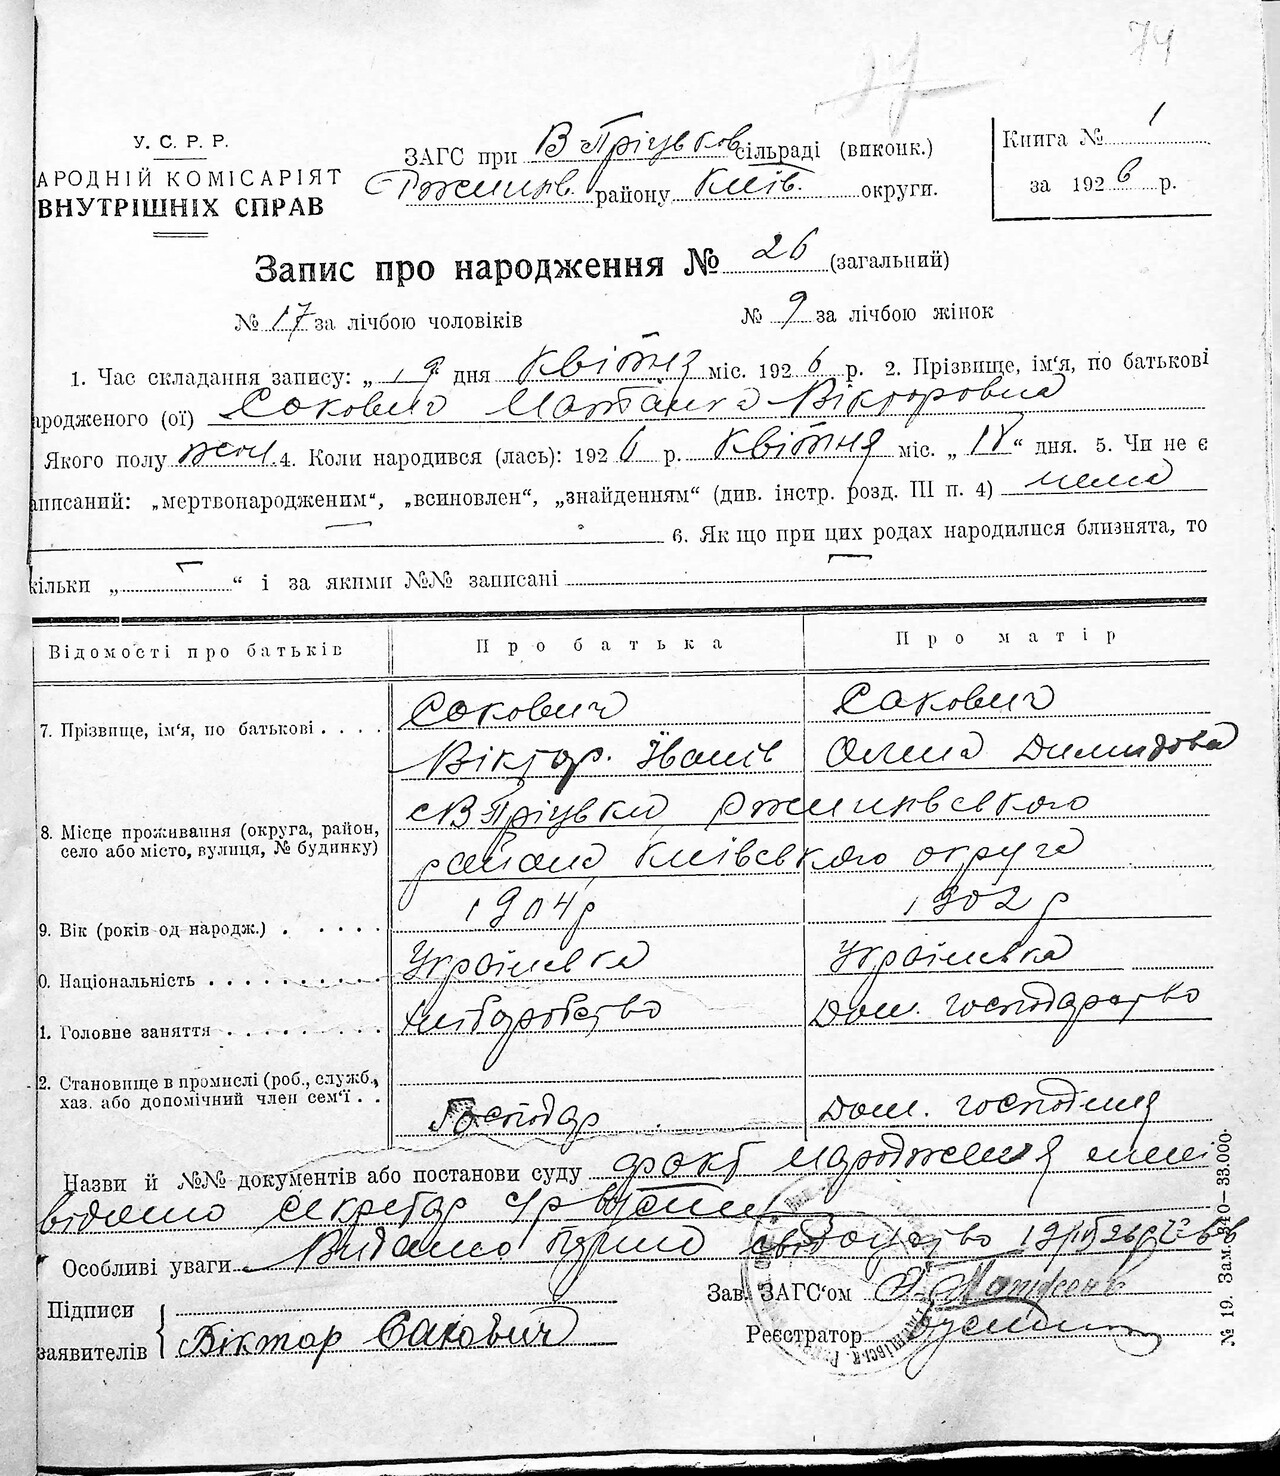 74
У. С. Р. Р.
АРОДНІЙ КОМІСАРІЯТ
ВНУТРІШНІХ СПРАВ
ЗАГС при В Пріцьков сільраді (виконк.)
Ржищів. району Київ. округи.
Книга № 1
за 1926 р.
Запис про народження № 26 (загальний)
№ 17 за лічбою чоловіків № 9 за лічбою жінок
1. Час складання запису: „ 19 дня квітня міс. 1926 р. 2. Прізвище, ім‘я, по батькові
ародженого (ої) Сокович Вікторовна
Якого полу жен. 4. Коли народився (лась): 1926 р. квітня міс. „ 18 “ дня. 5. Чи не є
аписаний: „мертвонародженим“, „всиновлен“, „знайденням“ (див. інстр. розд. III п. 4) нема
6. Як що при цих родах народилися близнята, то
кільки „ “ і за якими №№ записані
Відомості про батьків Про батька Про матір
7. Прізвище, ім‘я, по батькові . . . . Сокович Сакович
Віктор. Іванів Олена Димидова
8. Місце проживання (округа, район, село або місто, вулиця, № будинку) с В Пріцьки, Ржищівського
района, Київського округа
9. Вік (років од народж.) . . . . . 1904 р 1902 р
0. Національність . . . . . . . . . . Українка Українка
1. Головне заняття . . . . . . . . . Хліборобство Дом. господарство
2. Становище в промислі (роб., служб., хаз. або допомічний член сем‘ї . . Господар Дом. господиня
Назви й №№ документів або постанови суду факт народження мені
відомо секретар
Особливі уваги Видано свідоцтво
Підписи
заявителів Віктор Сакович
Зав. ЗАГС‘ом
Реєстратор
№ 19. Зам. 340—33.000.